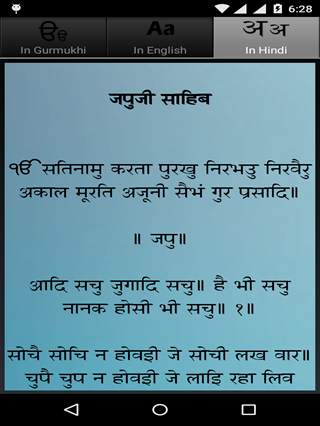 6:28
ੴ ੳ
Aa
अ अ
In Gurmukhi
In English
In Hindi
जपुजी साहिब
ੴ सतिनामु करता पुरखु निरभउ निरवैरु
अकाल मूरति अजूनी सैभं गुर प्रसादि॥
॥ जपु॥
आदि सचु जुगादि सचु॥ है भी सचु
नानक होसी भी सचु॥ १॥
सोचै सोचि न होवइी जे सोची लख वार॥
चुपै चुप न होवइी जे लाइि रहा लिव